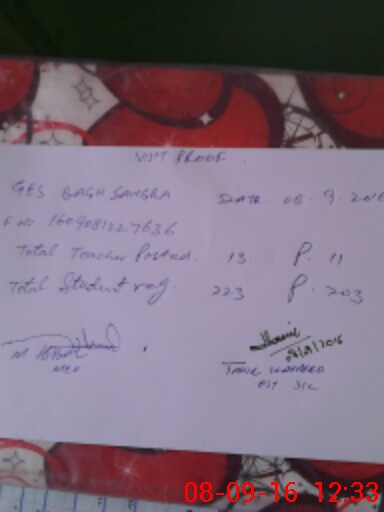 VISIT PROOF
GES BAGH SAMBRA DATE. 08. 9. 2016
F NO. 1609081227636
Total Teacher Posted. 13. P. 11
Total Student reg. 223 P. 203
M. IQBAL
08/9/2016
EST. I/c
08-09-16 12:33